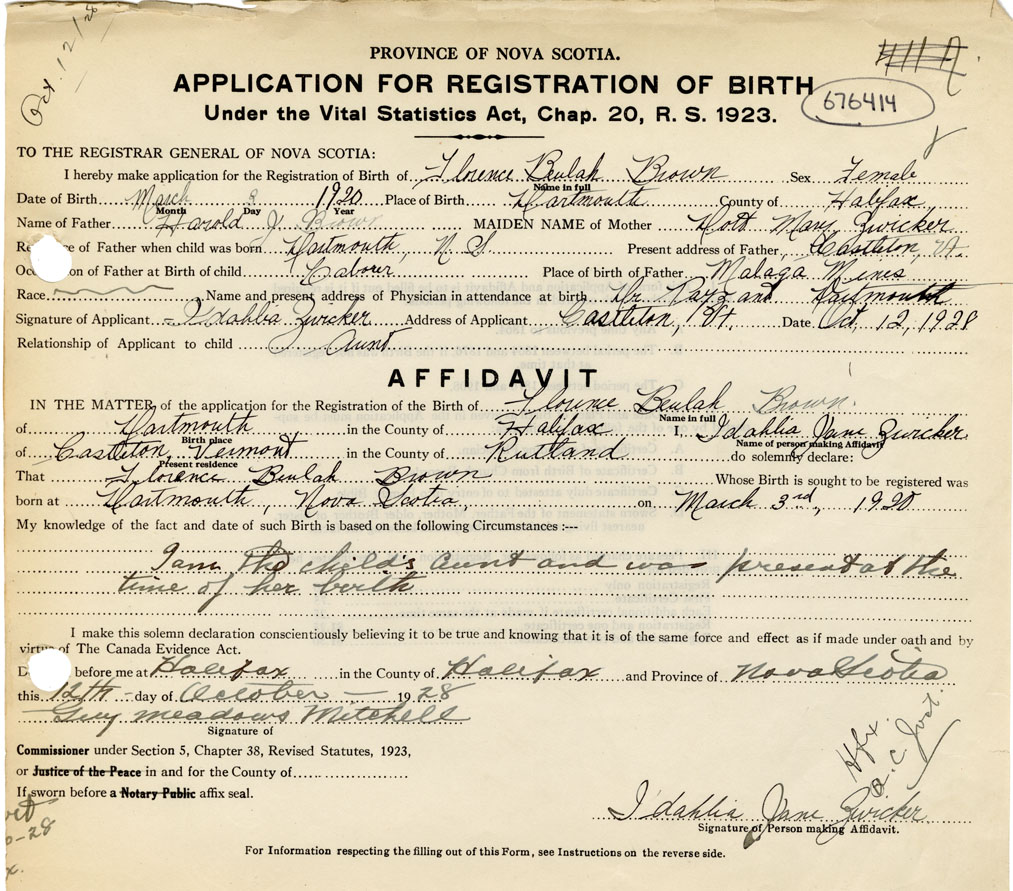 Oct. 12/28
PROVINCE OF NOVA SCOTIA.
APPLICATION FOR REGISTRATION OF BIRTH
676414
Under the Vital Statistics Act, Chap. 20, R. S. 1923.
TO THE REGISTRAR GENERAL OF NOVA SCOTIA:
I hereby make application for the Registration of Birth of Florence Beulah Brown Sex Female
Name in full
Date of Birth March 3 1920 Place of Birth Dartmouth County of Halifax
Month Day Year
Name of Father Harold J. Brown MAIDEN NAME of Mother Mary Zwicker
of Father when child was born Dartmouth, N. S. Present address of Father Castleton, Vt.
of Father at Birth of child Labour Place of birth of Father Malaga Mines
Race Name and present address of Physician in attendance at birth Dr. Dartmouth
Signature of Applicant Idahlia Zwicker Address of Applicant Castleton, Vt. Date Oct. 12, 1928
Relationship of Applicant to child Aunt
AFFIDAVIT
IN THE MATTER of the application for the Registration of the Birth of Florence Beulah Brown.
Name in full
of Dartmouth in the County of Halifax I, Idahlia Jane Zwicker
Birth place Name of person making Affidavit
of Castleton, Vermont in the County of Rutland do solemnly declare:
Present residence
That Florence Beulah Brown Whose Birth is sought to be registered was
born at Dartmouth, Nova Scotia, on March 3rd, 1920
My knowledge of the fact and date of such Birth is based on the following Circumstances :---
I am the child's aunt and was present at the
time of her birth
I make this solemn declaration conscientiously believing it to be true and knowing that it is of the same force and effect as if made under oath and by
virtue of The Canada Evidence Act.
before me at Halifax in the County of Halifax and Province of Nova Scotia
this 12th day of October 1928
Guy Meadows Mitchell
Signature of
Commissioner under Section 5, Chapter 38, Revised Statutes, 1923,
or Justice of the Peace in and for the County of
If sworn before a Notary Public affix seal.
Hfx.
Idahlia Jane Zwicker
Signature of Person making Affidavit.
For Information respecting the filling out of this Form, see Instructions on the reverse side.